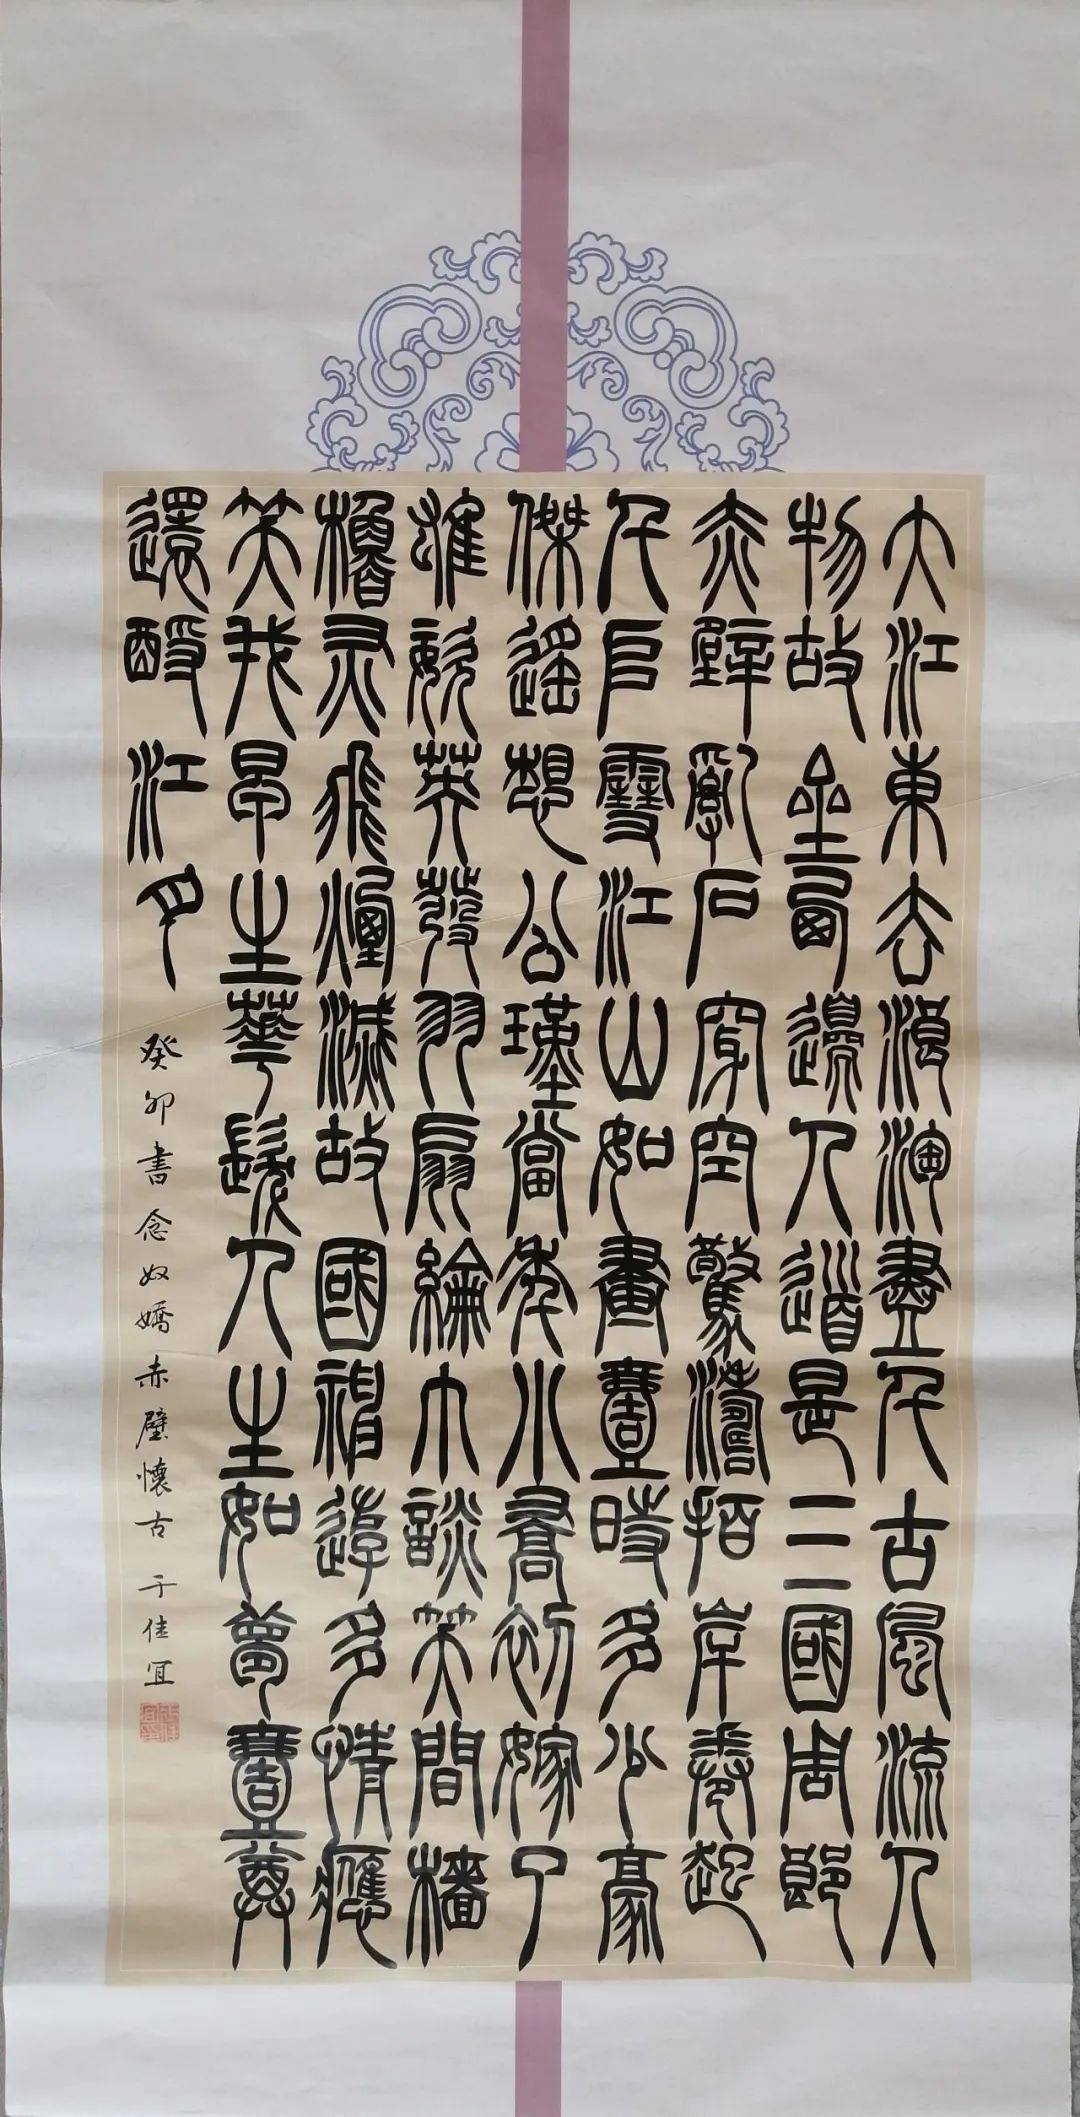 大江東去浪淘盡千古風流人
物故壘西邊人道是三國周郎
赤壁亂石穿空驚濤拍岸卷起
千堆雪江山如畫壹時多少豪
傑遙想公瑾當年小喬初嫁了
雄姿英發羽扇綸巾談笑間檣
櫓灰飛煙滅故國神遊多情應
笑我早生華髮人生如夢壹尊
還酹江月
癸卯書念奴嬌赤壁懷古 于佳宜